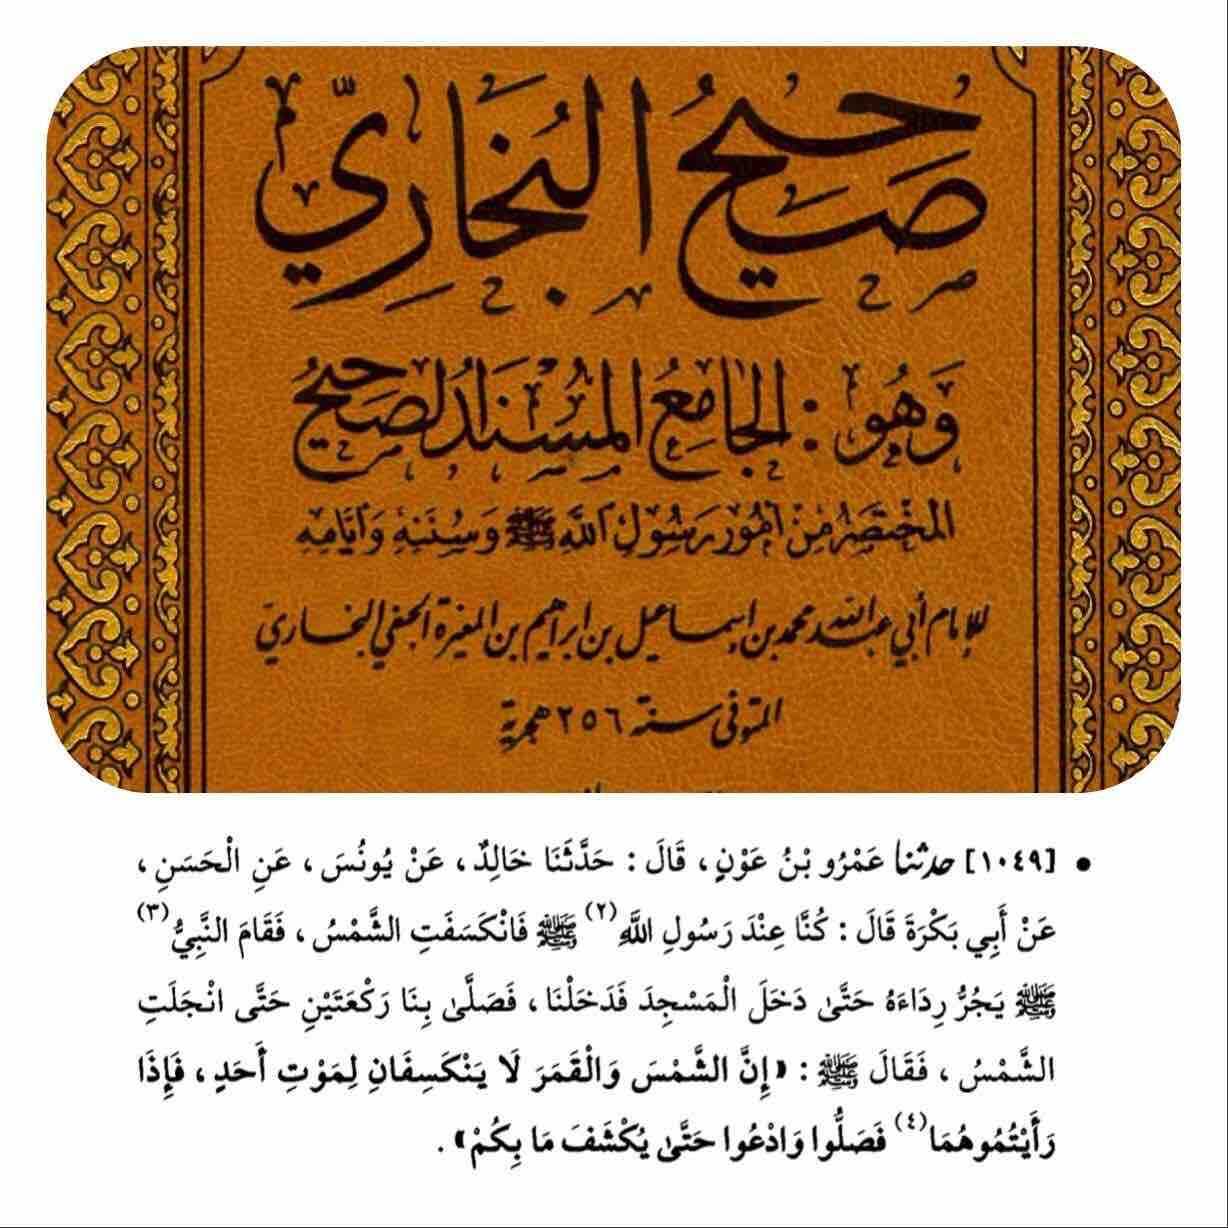 صَحِيحُ البُخَارِيّ
وَهُوَ : الجَامِعُ المُسْنَدُ الصَحِيحُ
المُخْتَصَرُ مِنْ أُمُورِ رَسُولِ اللَّهِ ﷺ وَسُنَنِهِ وَأَيَّامِهِ
للإمام أبي عبد الله محمد بن إسماعيل بن إبراهيم بن المغيرة الجعفي البخاري
المتوفى سنة ٢٥٦ هجرية
• [١٠٤٩] حدثنا عَمْرُو بْنُ عَوْنٍ ، قَالَ : حَدَّثَنَا خَالِدٌ ، عَنْ يُونُسَ ، عَنِ الْحَسَنِ ،
عَنْ أَبِي بَكْرَةَ قَالَ : كُنَّا عِنْدَ رَسُولِ اللَّهِ(٢) ﷺ فَانْكَسَفَتِ الشَّمْسُ ، فَقَامَ النَّبِيُّ(٣)
ﷺ يَجُرُّ رِدَاءَهُ حَتَّى دَخَلَ الْمَسْجِدَ فَدَخَلْنَا ، فَصَلَّى بِنَا رَكْعَتَيْنِ حَتَّى انْجَلَتِ
الشَّمْسُ ، فَقَالَ ﷺ : «إِنَّ الشَّمْسَ وَالْقَمَرَ لَا يَنْكَسِفَانِ لِمَوْتِ أَحَدٍ ، فَإِذَا
رَأَيْتُمُوهُمَا(٤) فَصَلُّوا وَادْعُوا حَتَّى يُكْشَفَ مَا بِكُمْ» .